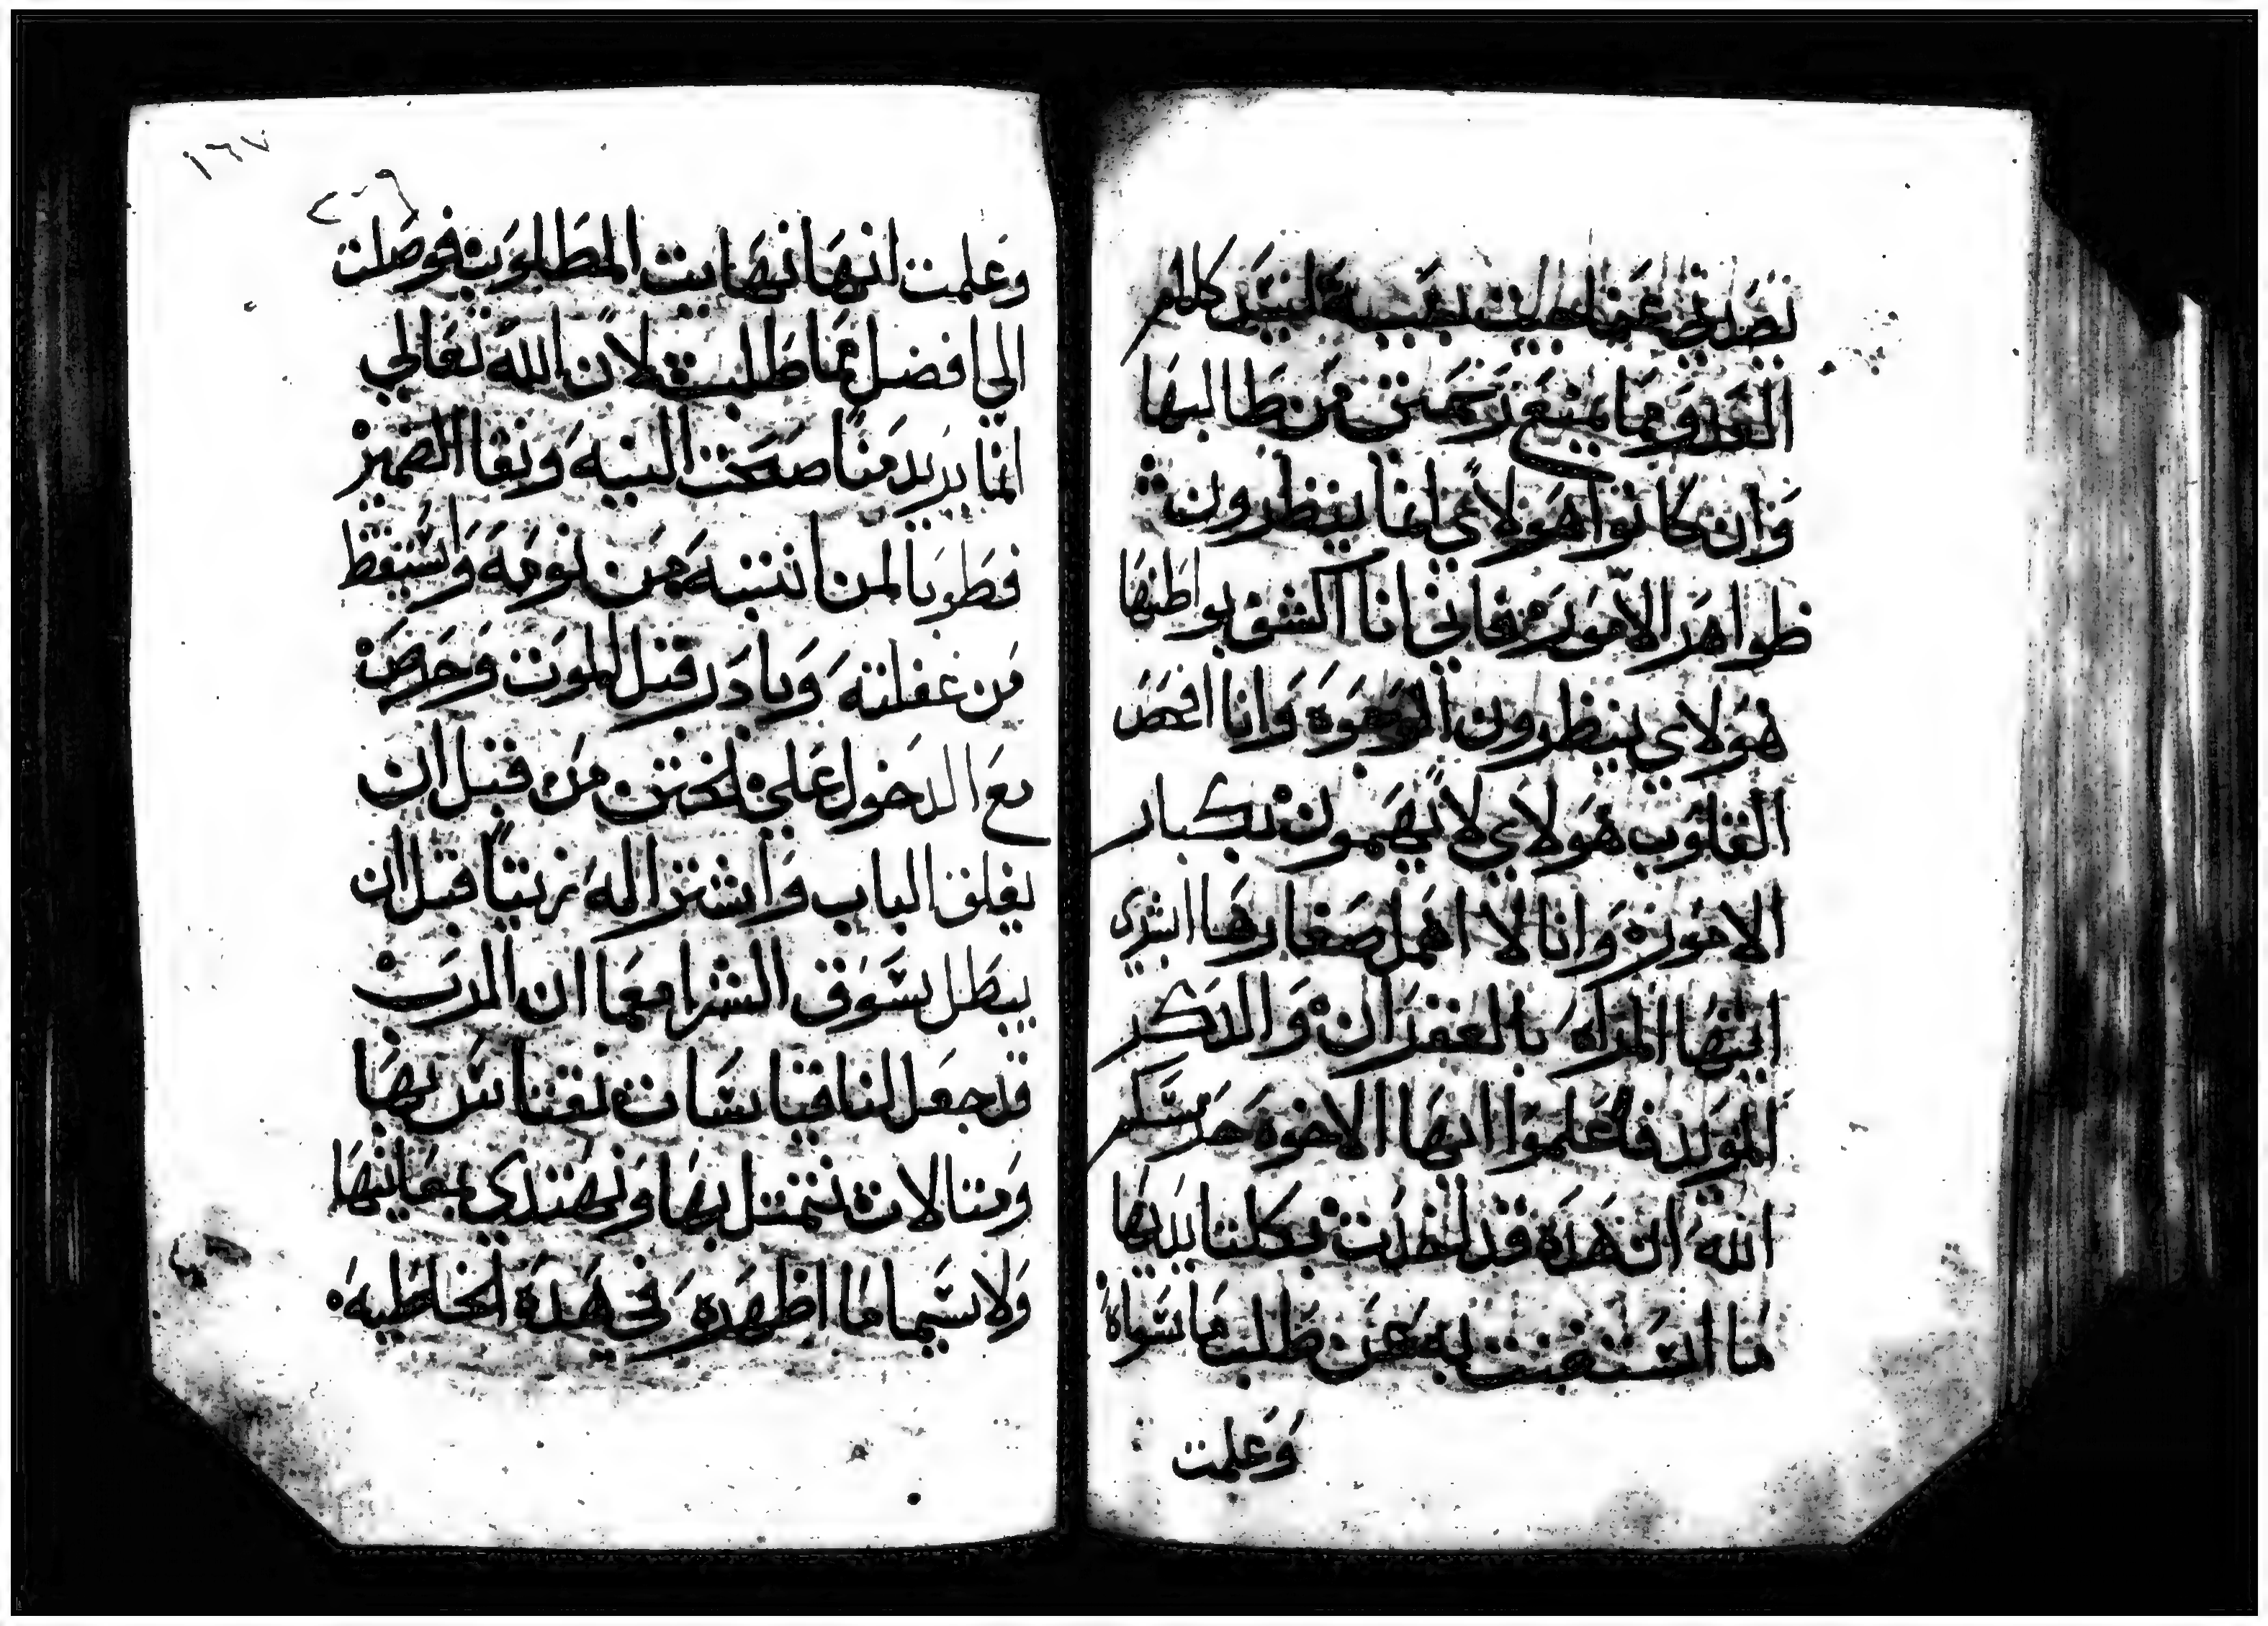 العدو مما يمنع رحمتي من طالبها
وان كانوا هولاي انما ينظرون
ظواهر الامور فاني انا اكشف بواطنها
هولاي ينظرون الوجوه وانا افحص
القلوب هولاي لا يهمون بكبار
الامور وانا لا اهمل صغارها ابشري
ايتها المراه بالغفران والدكر
الموبد فاعلموا ايها الاخوه حرسكم
الله ان هده قد اخدت بكلتا يديها
ما استغنت به عن طلب ما سواه
وعلمت
١٦٧
وعلمت انها نهايت المطلوب فوصلت
الي افضل مما طلبت لان الله تعالي
انما يريد منا صحت النيه ونقا الضمير
فطوبا لمن انتبه من نومه واستيقظ
من غفلته وبادر قبل الموت وحرض
مع الدخول علي الختن من قبل ان
يغلق الباب واشترا له زيتا قبل ان
يبطل سوق الشرا معما ان الرب
قد جعل لنا قياسات نقتاس بها
ومتالات نتمتل بها ونهتدي بمعانيها
ولا سيما ما اظهره في هده الخاطيه